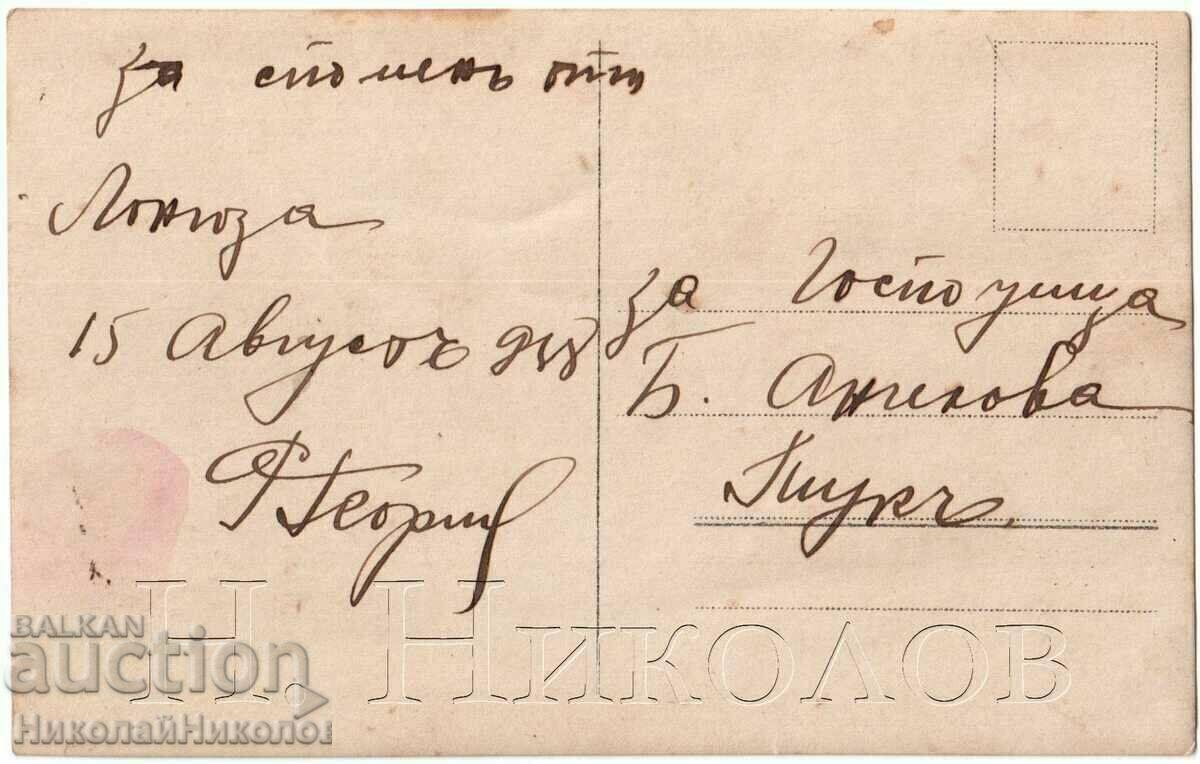 за споменъ отъ
Лонгоза
15 Августъ 918
Георгиев
за Господица
Б. Ангелова
Тукъ.
Н. Николов
BALKAN
auction
НиколайНиколов